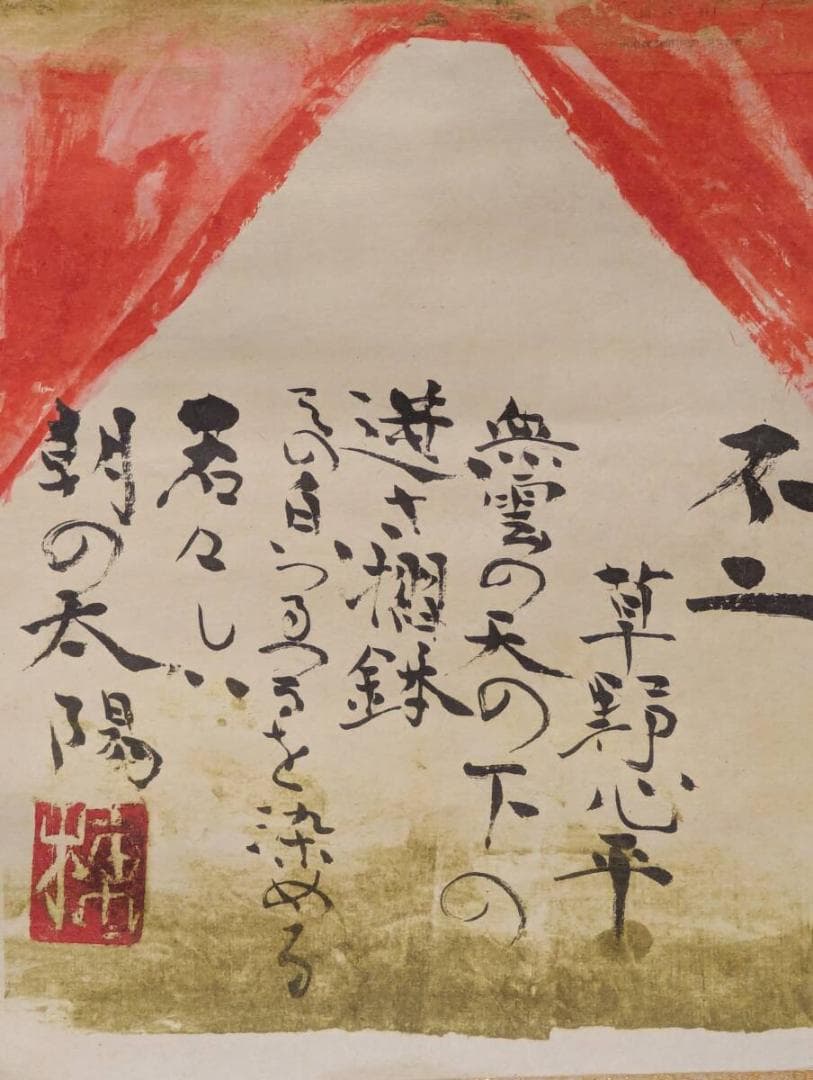 不二
草野心平
無雲の天の下の
逆さ摺鉢
その白いつるつるを染める
若々しい
朝の太陽